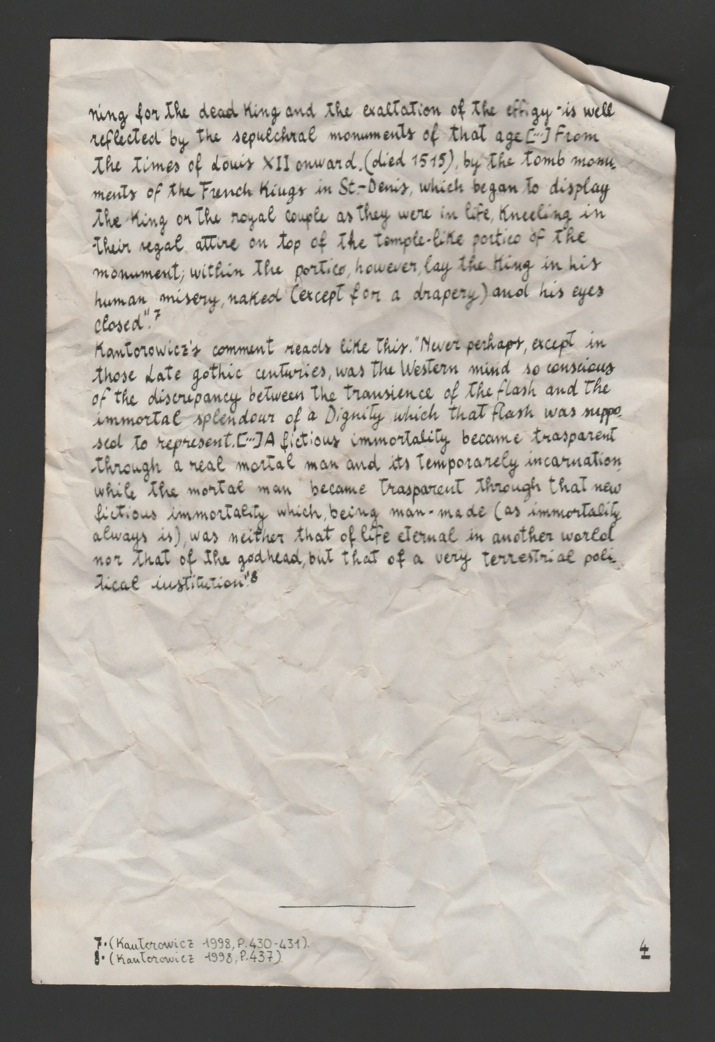 ning for the dead King and the exaltation of the effigy - is well
reflected by the sepulchral monuments of that age [...] From
the times of Louis XII onward, (died 1515), by the tomb monu
ments of the French Kings in St-Denis, which began to display
the King or the royal couple as they were in life, Kneeling in
their regal attire on top of the temple-like portico of the
monument; within the portico, however, lay the King in his
human misery, naked (except for a drapery) and his eyes
closed".7
Kantorowicz's comment reads like this. "Never perhaps, except in
those Late gothic centuries, was the Western mind so conscious
of the discrepancy between the transience of the flash and the
immortal splendour of a Dignity which that flash was suppo
sed to represent. [...] A fictious immortality became trasparent
through a real mortal man and its temporarely incarnation,
while the mortal man became trasparent through that new
fictious immortality which, being man-made (as immortality
always is), was neither that of life eternal in another world
nor that of the godhead, but that of a very terrestrial poli
tical institution".8
7. (Kantorowicz 1998, P. 430-431).
8. (Kantorowicz 1998, P. 437)
4